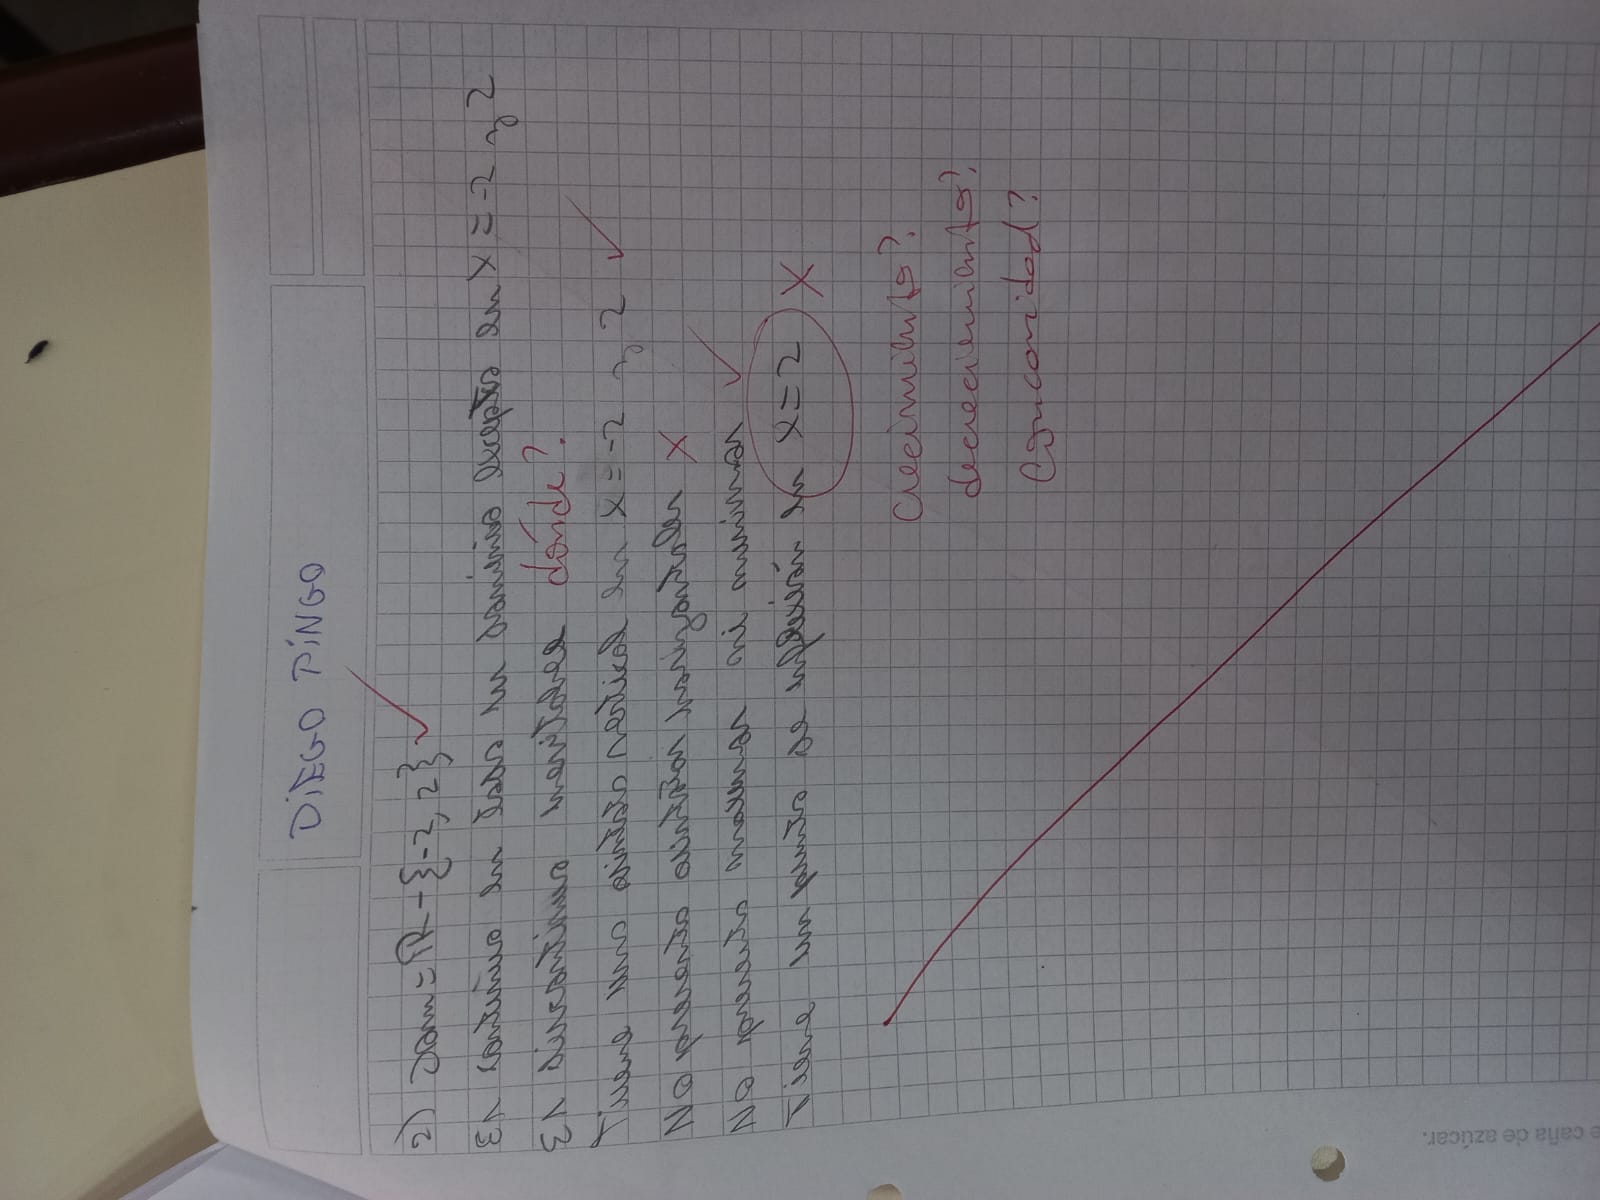 DIEGO PINGO
2) Dom = R - {-2, 2}
Es continua en todo su dominio excepto en x = -2 y 2
Es discontinua inevitable dónde?
Tiene una asíntota vertical en x = -2 y 2
No presenta asíntotas horizontales X
No presenta máximos ni mínimos
Tiene un punto de inflexión en x = 2 X
Crecimiento?
decrecimiento?
Concavidad?
e caña de azúcar.